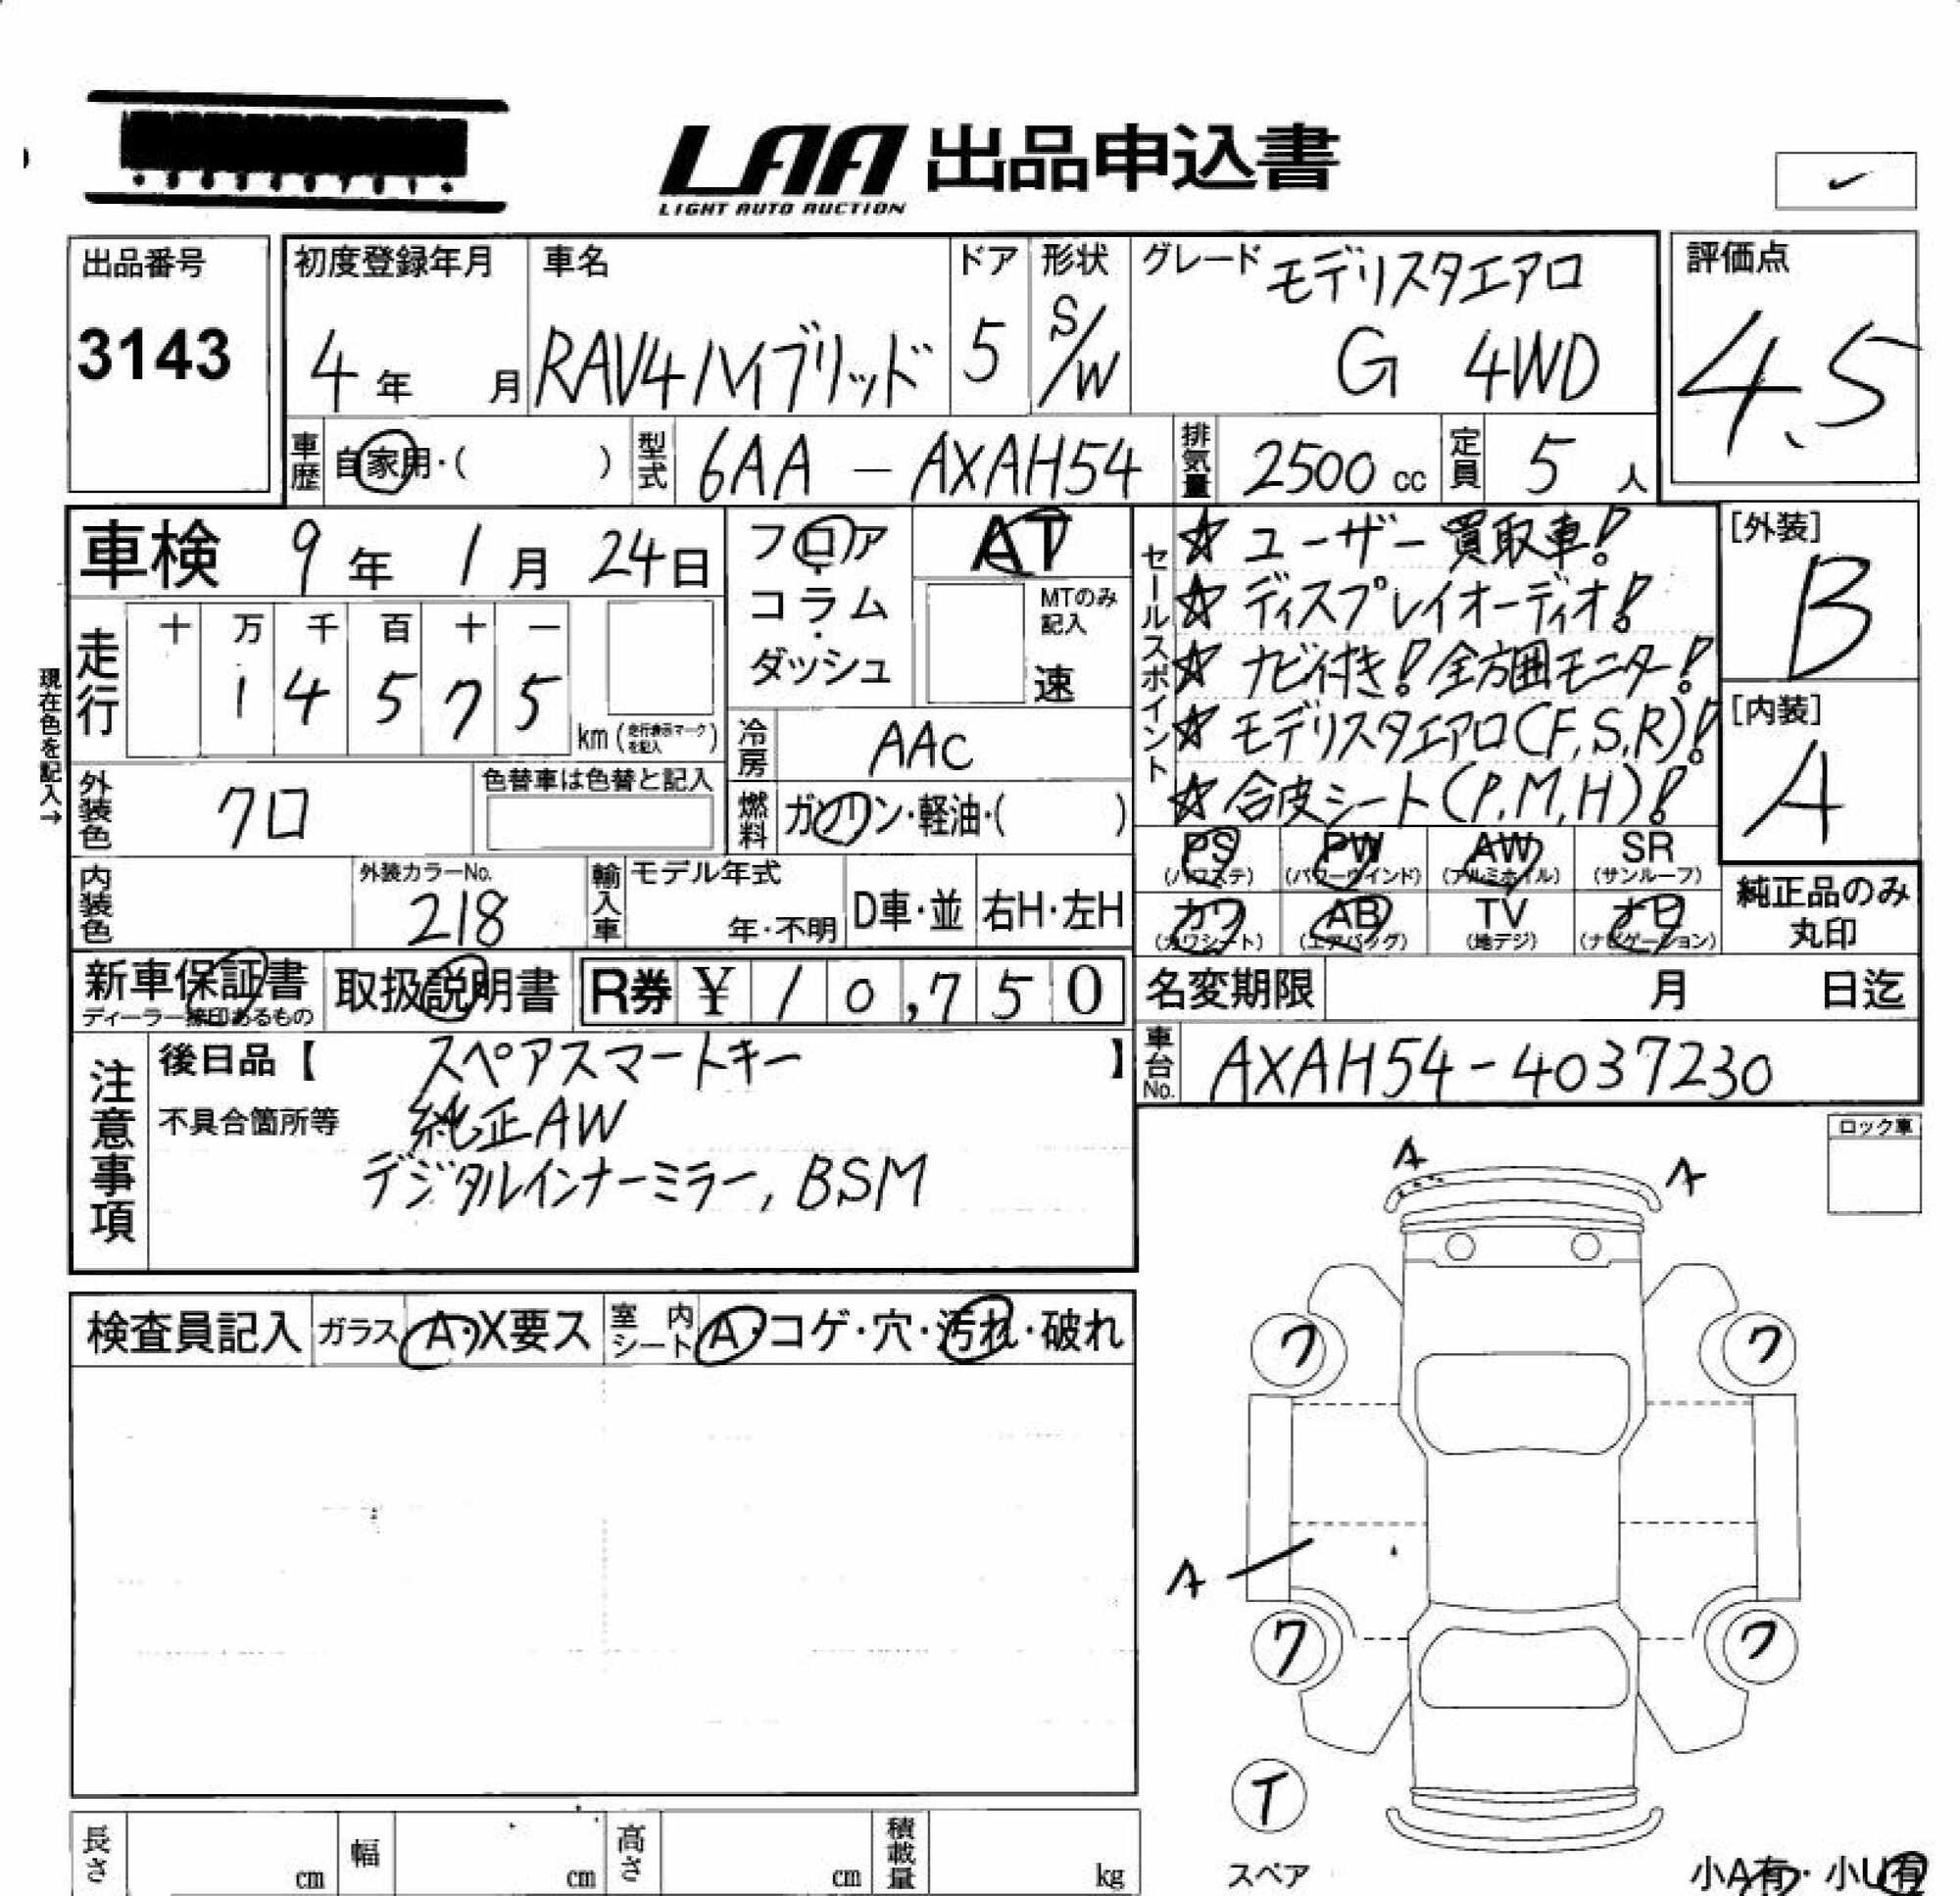 LAA 出品申込書
LIGHT AUTO AUCTION
出品番号
3143
初度登録年月
4年 月
車名
RAV4ハイブリッド
ドア
5
形状
S/W
グレード モデリスタエアロ
G 4WD
評価点
4.5
車歴 自家用・( )
型式 6AA - AXAH54
排気量 2500 cc
定員 5 人
車検 9年 1月 24日
フロア・コラム・ダッシュ
AT
MTのみ記入
速
走行
十 万 千 百 十 一
1 4 5 7 5 km (走行表示マークを記入)
現在色を記入→
冷房 AAC
外装色 クロ
色替車は色替と記入
燃料 ガソリン・軽油・( )
内装色
外装カラーNo.
218
輸入車
モデル年式
年・不明
D車・並
右H・左H
セールスポイント
☆ ユーザー買取車!
☆ ディスプレイオーディオ!
☆ ナビ付き!全方囲モニター!
☆ モデリスタエアロ(F,S,R)!
☆ 合皮シート(P,M,H)!
[外装]
B
[内装]
A
PS PW AW SR
(パワステ) (パワーウインド) (アルミホイル) (サンルーフ)
カワ AB TV ナビ
(カワシート) (エアバッグ) (地デジ) (ナビゲーション)
純正品のみ
丸印
新車保証書
ディーラー捺印あるもの
取扱説明書
R券 ¥ 10,750
名変期限 月 日迄
車台No. AXAH54-4037230
注意事項
後日品【 スペアスマートキー 】
不具合箇所等 純正AW
デジタルインナーミラー, BSM
ロック車
検査員記入
ガラス A・X要ス
室内シート A・コゲ・穴・汚れ・破れ
A A
ワ ワ
A
ワ ワ
T
スペア
長さ cm
幅 cm
高さ cm
積載量 kg
小A有・小U有